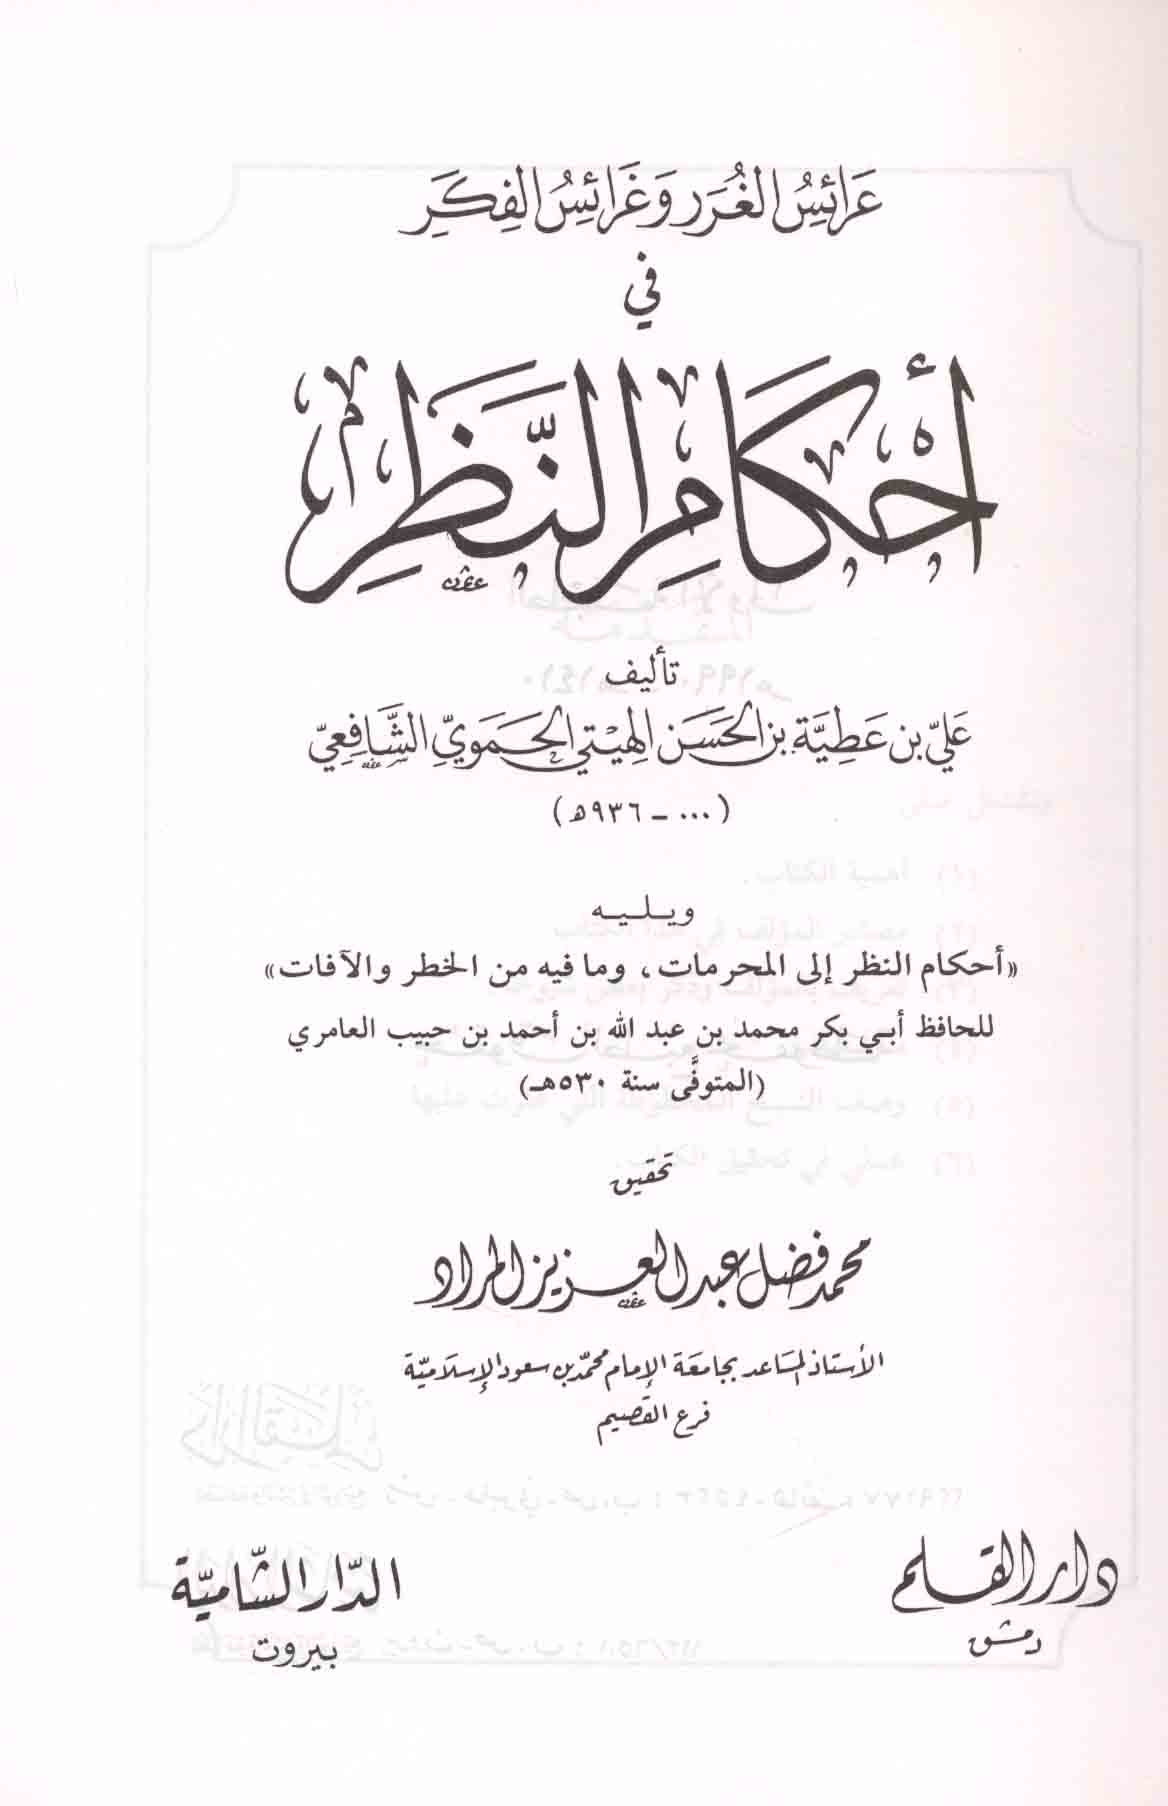 عَرَائِسُ الغُرَرِ وَغَرَائِسُ الفِكَرِ
في
أحكام النَّظَرِ
تأليف
عَليّ بن عَطِيَّة بن الحَسَن الهِيْتي الحَمَوِيِّ الشَّافِعِيّ
(... - ٩٣٦ هـ)
ويـلـيـه
«أحكام النظر إلى المحرمات، وما فيه من الخطر والآفات»
للحافظ أبي بكر محمد بن عبد الله بن أحمد بن حبيب العامري
(المتوفَّى سنة ٥٣٠هـ)
تحقيق
محمد فضل عبد العزيز المراد
الأستاذ المساعد بجامعة الإمام محمد بن سعود الإسلاميّة
فرع القصيم
دار القلم
دمشق
الدّار الشّاميّة
بيروت